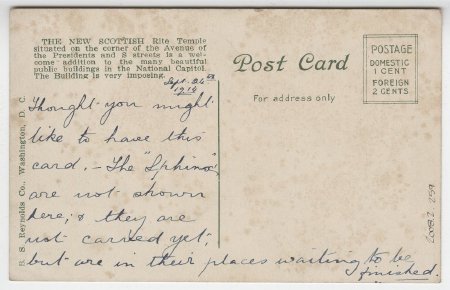 THE NEW SCOTTISH Rite Temple
situated on the corner of the Avenue of
the Presidents and S streets is a wel-
come addition to the many beautiful
public buildings in the National Capitol.
The Building is very imposing.
Post Card
For address only
POSTAGE
DOMESTIC
1 CENT
FOREIGN
2 CENTS
B. S. Reynolds Co., Washington, D. C.
Sept. 24th
1914
Thought you might
like to have this
card. - The "Sphinx"
are not shown
here, & they are
not carved yet,
but are in their places waiting to be
finished.
2008.2.259